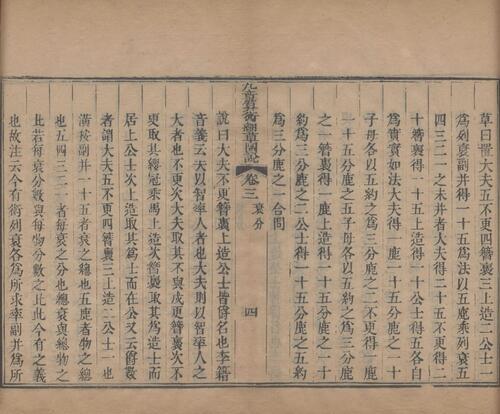 草曰置大夫五不更四簪裹三上造二公士一
爲列衰副并得一十五爲法以五鹿乘列衰五
四三二一之未并者大夫得二十五不更得二
十簪裹得一十五上造得一十公士得五各自
爲實實如法大夫得一鹿一十五分鹿之一十
子母各以五約之爲三分鹿之二不更得一鹿
一十五分鹿之五子母各以五約之爲三分鹿
之一簪裹得一鹿上造得一十五分鹿之一十
約爲三分鹿之二公士得一十五分鹿之五約
爲三分鹿之一合問
九章算術細草圖說 卷三 衰分 四
說曰大夫不更簪裹上造公士皆爵名也李籍
音義云夫以智率人者也大夫則以智率人之
大者也不更次大夫取其不與戍更簪裹次不
更取其纓冠乘馬上造次簪裹取其爲造士而
居上公士次上造取其爲士而在公又云爵數
者謂大夫五不更四簪裹三上造二公士一也
潢按副并一十五者衰之總也五鹿者物之總
也五四三二一者每衰之分也總衰與總物之
比若每衰分數與每物分數之比此今有之義
也故注云今有術列衰各爲所求率副并爲所